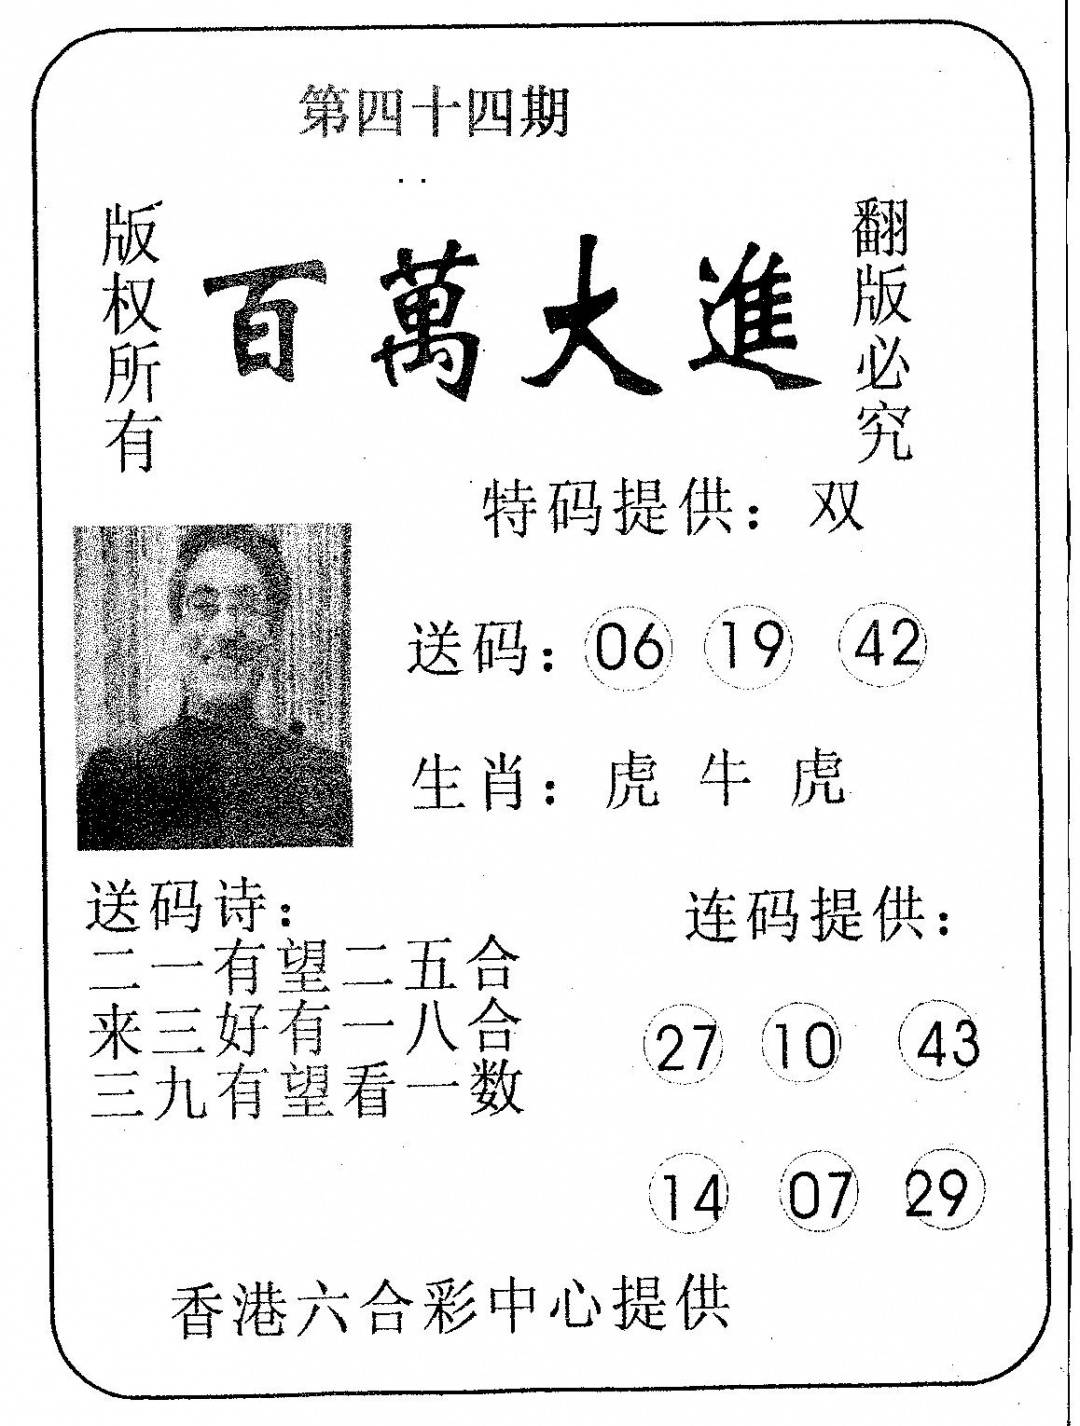 第四十四期
版权所有
百萬大進
翻版必究
特码提供：双
送码：06 19 42
生肖：虎 牛 虎
送码诗：
二一有望二五合
来三好有一八合
三九有望看一数
连码提供：
27 10 43
14 07 29
香港六合彩中心提供